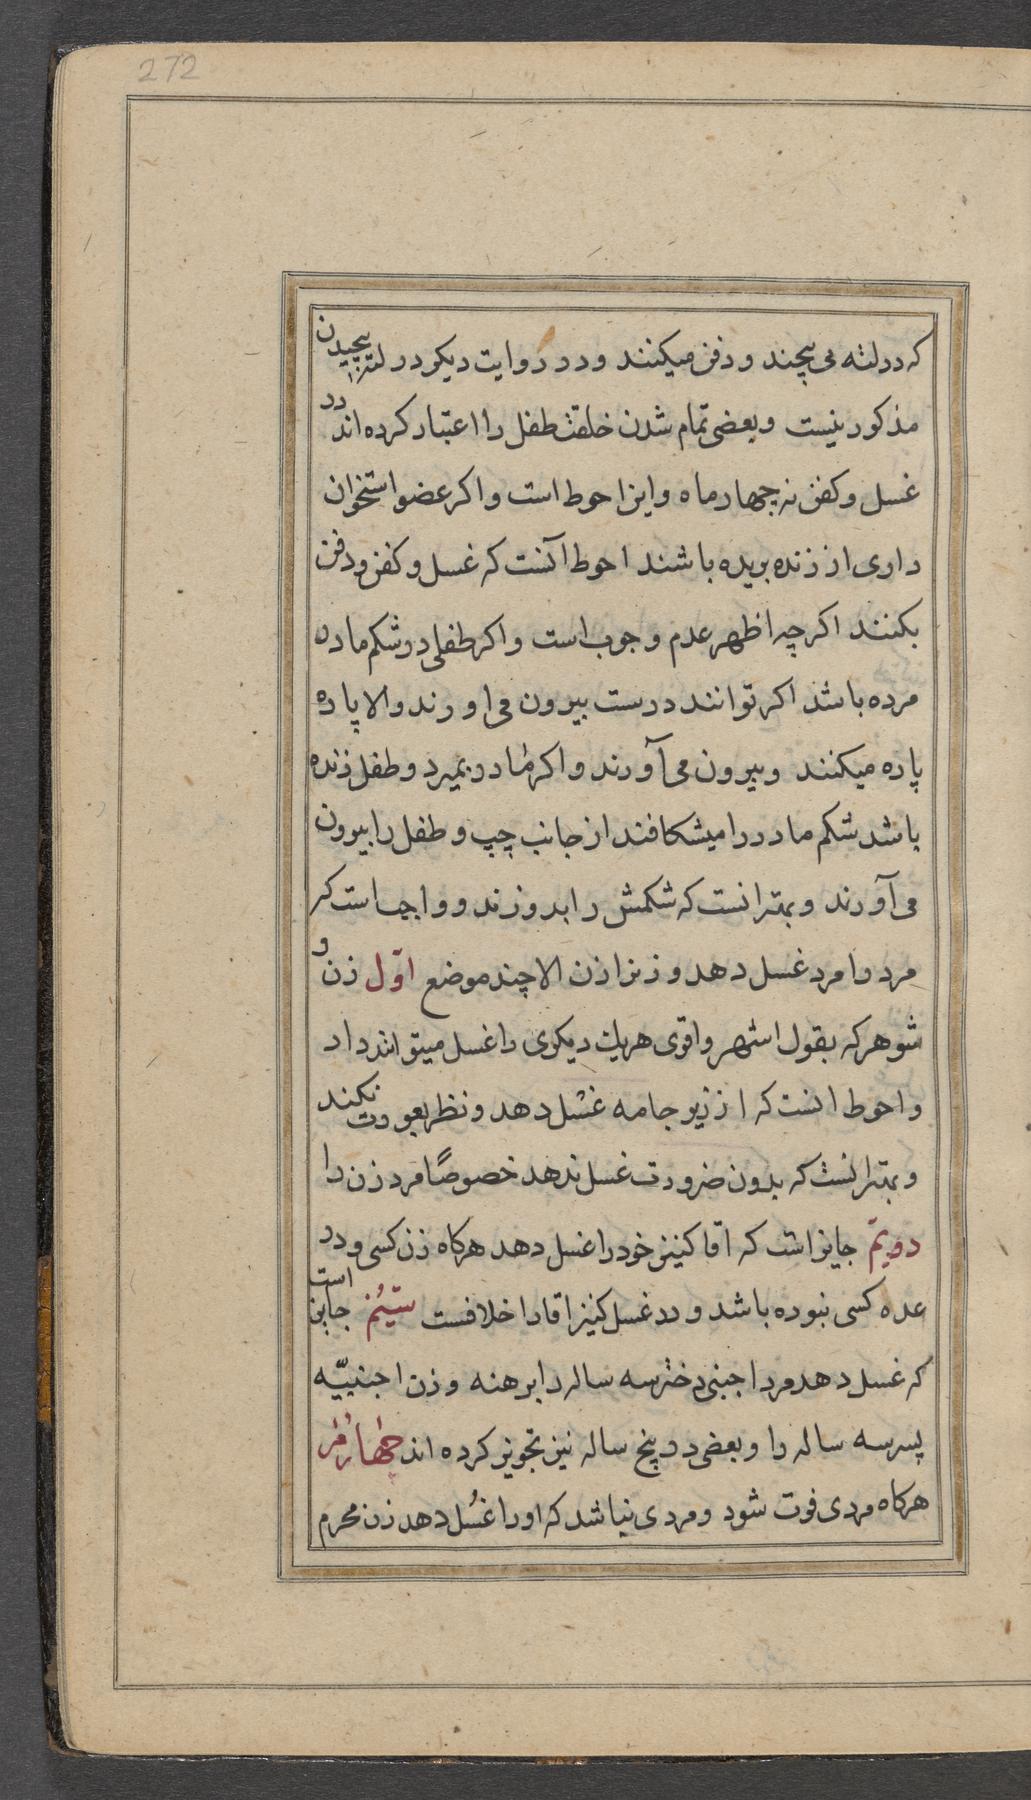 272
که در لته می پیچند و دفن میکنند و در روایت دیکر در لته پیچیدن
مذکور نیست و بعضی تمام شدن خلقت طفل را اعتبار کرده اند در
غسل و کفن نه چهار ماه و این احوط است و اکر عضو استخوان
داری از زنده بریده باشند احوط آنست که غسل و کفن و دفن
بکنند اکرچه اظهر عدم وجوب است و اکر طفلی در شکم مادر
مرده باشد اکر توانند درست بیرون می اورند والا پاره
پاره میکنند و بیرون می آورند و اکر مادر بمیرد و طفل زنده
باشد شکم مادر را میشکافند از جانب چپ و طفل را بیرون
می آورند و بهتر انست که شکمش را بدوزند و واجب است که
مرد را مرد غسل دهد و زن را زن الا چند موضع اوّل زن و
شوهر که بقول اشهر و اقوی هر یك دیکری را غسل میتوانند داد
و احوط انست که از زیر جامه غسل دهد و نظر بعورت نکند
و بهتر انست که بدون ضرورت غسل ندهد خصوصًا مرد زن را
دویّم جایز است که اقا کنیز خود را غسل دهد هرکاه زن کسی و در
عده کسی نبوده باشد و در غسل کنیز اقا را خلافست سیّم جایز است
که غسل دهد مرد اجنبی دختر سه ساله را برهنه و زن اجنبیّه
پسر سه ساله را و بعضی در پنج ساله نیز تجویز کرده اند چهارم
هرکاه مردی فوت شود و مردی نباشد که او را غسل دهد زن محرم